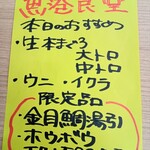 魚港食堂
本日のおすすめ
・生本まぐろ
大トロ
中トロ
・ウニ・イクラ
限定品
・金目鯛湯引
・ホウボウ